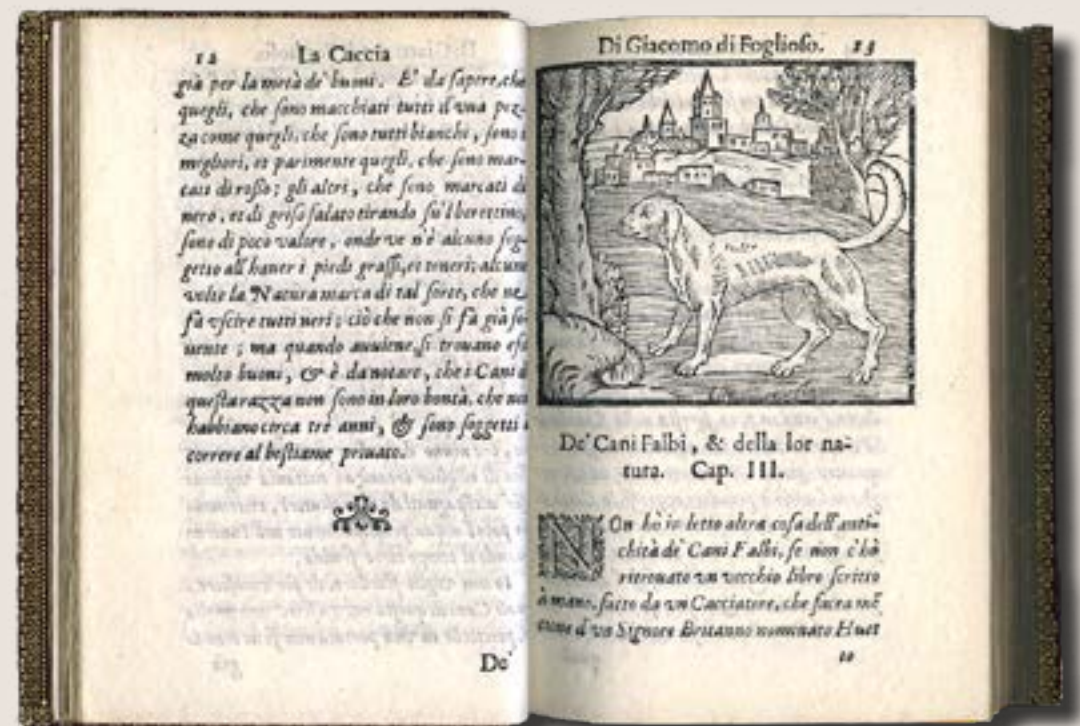 12 La Caccia
già per la metà de' buoni. E' da sapere, che
quegli, che sono macchiati tutti d'vna pez-
za come quegli, che sono tutti bianchi, sono i
migliori, et parimente quegli, che sono mar-
cati di rosso; gli altri, che sono marcati di
nero, et di griso salato tirando su'l berettino,
sono di poco valore, onde ve n'è alcuno sog-
getto all'hauer i piedi grassi, et teneri; alcune
volte la Natura marca di tal sorte, che ne
fà vscire tutti neri; ciò che non si fà già so-
uente; ma quando auuiene, si trouano esser
molto buoni, & è da notare, che i Cani di
questa razza non sono in loro bontà, che non
habbiano circa trè anni, & sono soggetti
correre al bestiame priuato.
De'
Di Giacomo di Foglioso. 13
De' Cani Falbi, & della lor na-
tura. Cap. III.
NOn hò io letto altra cosa dell'anti-
chità de' Cani Falbi, se non c'hò
ritrouato vn vecchio libro scritto
à mano, fatto da vn Cacciatore, che facea mē
tione d'vn Signore Britanno nominato Huet